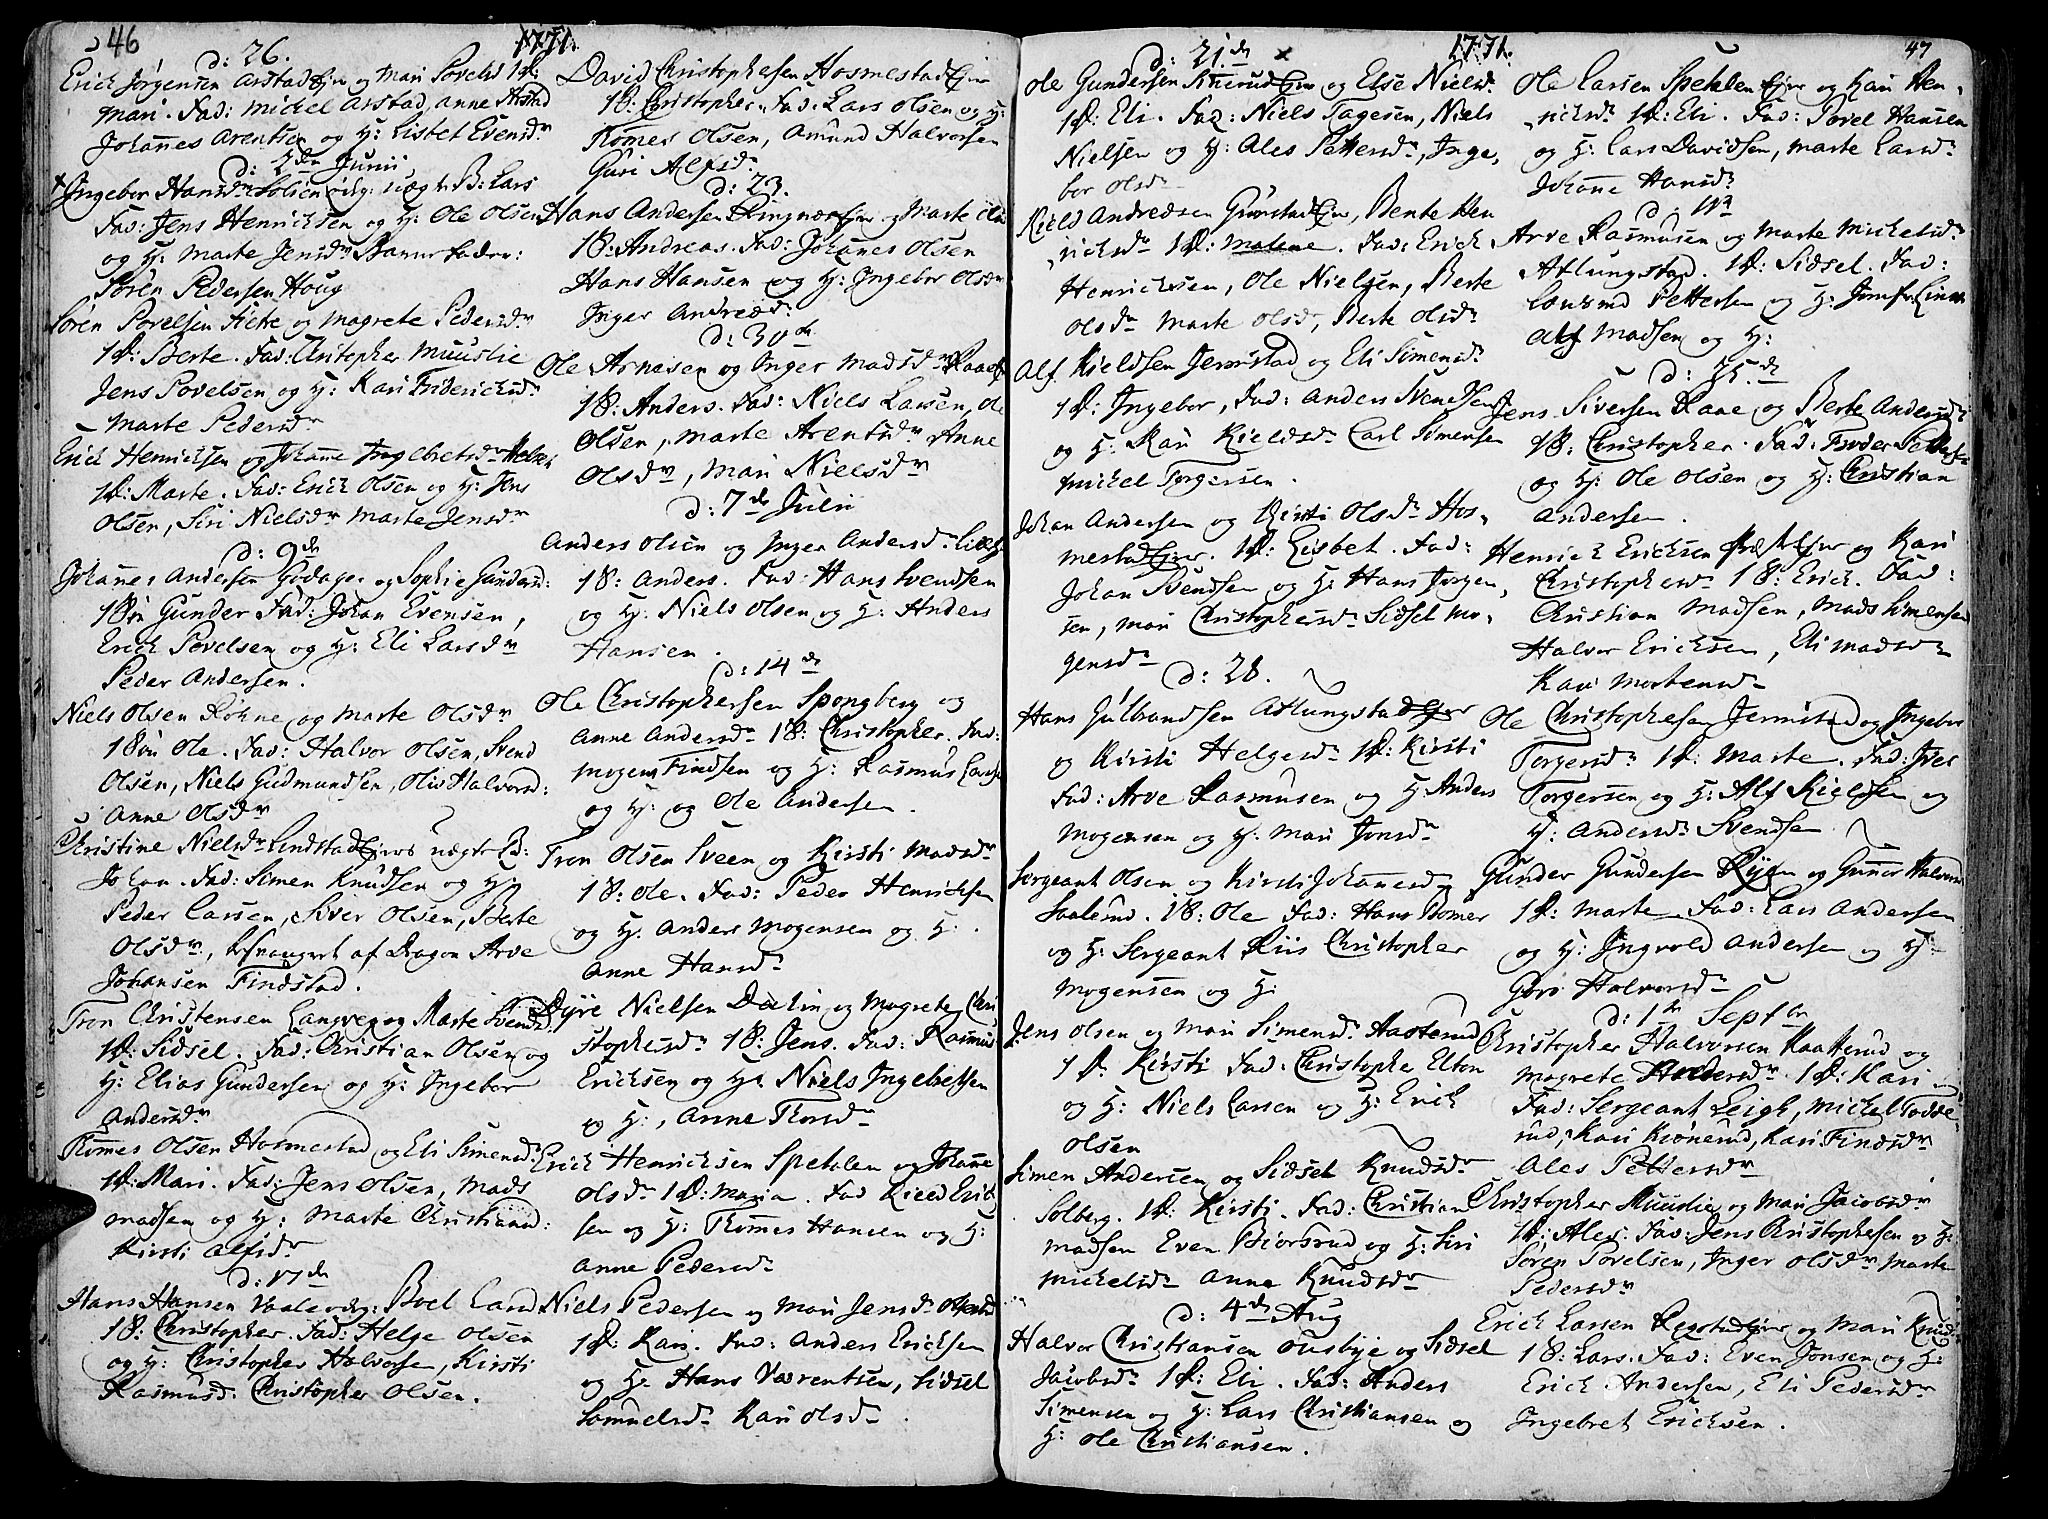 46
1771.
d: 26.
Erich Jørgensen Arstad Ejer og Mari Povelsd 1 D:
Mari. Fad: Michel Arstad, Anne Arstad
Johannes Arentsen og H: Lisbet Evensdr
d: 2den Junii
Ingebor Hansdr Solien Lars
Fad: Jens Henrichsen og H: Ole Olsen
og H: Marte Jensdr Barnefader:
Søren Pedersen Houg
Søren Povelsen og Magrete Pedersdr
1 D: Berte. Fad: Christopher Muuslie
Jens Povelsen og H: Kari Friderichsdr
Marte Pedersdr
Erich Henrichsen og Johanne Ingebretsdr
1 D: Marte. Fad: Erich Olsen og H: Jens
Olsen, Siri Nielsdr Marte Jensdr
d: 9de
Johannes Andersen Godager og Sophie Gundersd:
1 Søn Gunder Fad: Johan Evensen,
Erich Povelsen og H: Eli Larsdr
Peder Andersen.
Niels Olsen Røhne og Marte Olsdr
1 Søn Ole. Fad: Halvor Olsen, Svend
Olsen, Niels Gudmundsen, Olis Halvorsd:
Anne Olsdr
Christine Nielsdr Lindstad Ejer uægte B:
Johan. Fad: Simen Knudsen og H:
Peder Larsen, Siver Olsen, Berte
Olsdr, besvangret af Dragon Arve
Johansen Findstad.
Tron Christensen Langveg og Marte Svends
1 D: Sidsel. Fad: Christian Olsen og
H: Elias Gundersen og H: Ingebor
Andersdr
Tomes Olsen Hosmestad og Eli Simensd:
1 D: Mari. Fad: Jens Olsen, Mads
Madsen og H: Marte Christiansd:
Kirsti Alfsdr
d: 17de
Hans Hansen Boel Larsd
1 S: Christopher. Fad: Helge Olsen
og H: Christopher Halvorsen, Kirsti
Rasmusd: Christopher Olsen.
David Christophersen Hosmestad Ejer
1 S: Christopher. Fad: Lars Olsen og H:
Tomes Olsen, Amund Halvorsen
Guri Alfsdr
d: 23.
Hans Andersen Ringnæs Ejer og Marte
1 S: Andreas. Fad: Johannes Olsen
Hans Hansen og H: Ingebor Olsdr
Inger Andreæd:
d: 30te
Ole Arnesen og Inger Madsdr
1 S: Anders. Fad: Niels Larsen, Ole
Olsen, Marte Arentsdr Anne
Olsdr, Mari Nielsdr
d: 7de Julii
Anders Olsen og Inger Andersdr
1 S: Anders. Fad: Hans Svendsen
og H: Niels Olsen og H: Anders
Hansen.
d: 14de
Ole Christophersen Spongberg og
Anne Andersdr 1 S: Christopher. Fad:
Mogens Findsen og H: Rasmus Larse
og H: og Ole Andersen.
Tron Olsen Sveen og Kirsti Madsdr
1 S: Ole. Fad: Peder Henrichsen
og H: Anders Mogensen og H:
Anne Hansdr
Dyre Nielsen Dælin og Magrete Chri
stophersdr 1 S: Jens. Fad: Rasmus
Ericksen og H: Niels Ingebretsen
og H:, Anne Thorsdr
Erich Henrichsen Spetalen og Johanne
Olsdr 1 D: Maria. Fad Kield Erich
sen og H: Thomes Hansen og H:
Anne Pedersdr
Niels Pedersen og Mari Jensdr
1 D: Kari. Fad: Anders Erichsen
og H: Hans Værentsen, Sidsel
Samuelsdr Kari Olsdr
1771.
47
d: 21de
Ole Gundersen Ejer og Else Nielsd:
1 D: Eli. Fad: Niels Tagesen, Niels
Nielsen og H: Ales Pettersdr, Inge,
bor Olsdr
Kield Andreæsen Grønstad Ejer, Bente Hen
richsdr 1 D: Malene. Fad: Erich
Henrichsen, Ole Nielsen, Berte
Olsdr Marte Olsdr, Berte Olsdr
Alf Kieldsen Jemstad og Eli Simensdr
1 D: Ingebor, Fad: Anders Svendsen
og H: Kari Kieldsdr Carl Simensen
Michel Torgersen.
Johan Andersen og Kirsti Olsdr Hos,
mestad Ejer. 1 D: Lisbet. Fad:
Johan Svendsen og H: Hans Jørgen,
sen, Mari Christophersdr Sidsel Mo,
gensdr
d: 28.
Hans Gulbrandsen Atlungstad Ejer
og Kirsti Helgesdr 1 D: Kirsti
Fad: Arve Rasmusen og H: Anders
Mogensen og H: Mari Jonsdr
Sergeant Olsen og Kirsti Johannesdr
Saalerud. 1 S: Ole Fad: Hans Bomer
og H: Sergeant Riis Christopher
Mogensen og H:
Jens Olsen og Mari Simensdr Haaterud
1 D: Kirsti Fad: Christopher Elton
og H: Niels Larsen og H: Erich
Olsen
Simen Andersen og Sidsel Knudsdr
Solberg. 1 D: Kirsti. Fad: Christian
Madsen Even Biørsrud og H: Siri
Michelsdr Anne Knudsdr
d: 4de Aug
Halvor Christiansen Ousbye og Sidsel
Jacobsdr 1 D: Eli. Fad: Anders
Simensen og H: Lars Christiansen og
H: Ole Christiansen.
Ole Larsen Spetalen Ejer og Kari Hen,
richsdr 1 D: Eli. Fad: Povel Hansen
og H: Lars Davidsen, Marte Larsdr
Johanne Hansdr
d: 11te
Arve Rasmusen og Marte Michelsdr
Atlungstad. 1 D: Sidsel. Fad:
Pettersen og H: Jomfr
Alf Madsen og H:
d: 25de
Jens Siversen Raae og Berte Andersdr
1 S: Christopher. Fad: Peder Pettersen
og H: Ole Olsen og H: Christian
Andersen.
Henrich Erichsen Ejer og Kari
Christophersdr 1 S: Erich. Fad:
Christian Madsen, Mads Simensen
Halvor Erichsen, Eli Madsdr
Kari Mortensdr
Ole Christophersen Jemstad og Ingebor
Torgersdr 1 D: Marte. Fad: Iver
Torgersen og H: Alf Kieldsen og
H: Andersdr Svendsen
Gunder Gundersen Ryen og Gunor Halvorsd
1 D: Marte. Fad: Lars Andersen
og H: Ingvold Andersen og H:
Goro Halvorsdr
d: 1te Septbr
Christopher Halvorsen Kaatterud og
Magrete 1 D: Kari
Fad: Sergeant Leigh, Michel Todde,
rud, Kari Kiønerud, Kari Findsdr
Ales Pettersdr
Christopher Muuslie og Mari Jacobsdr
1 D: Ales. Fad: Jens Christophersen og H:
Søren Povelsen, Inger Olsdr Marte
Pedersdr
Erich Larsen Ejer og Mari Knudsd
1 S: Lars. Fad: Even Jonsen og H:
Erich Andersen, Eli Pedersdr
Ingebret Erichsen.